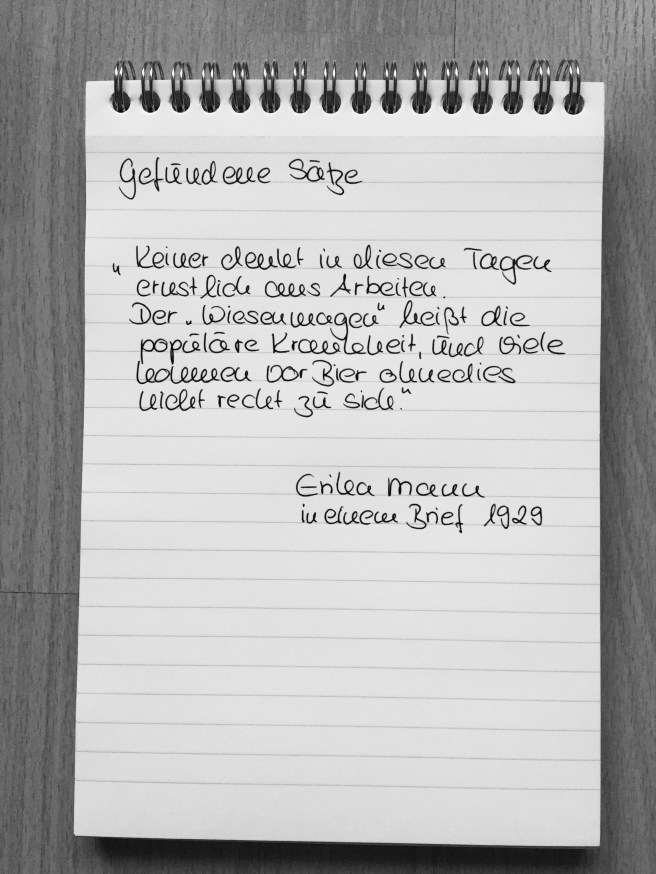 Gefundene Sätze
„Keiner denkt in diesen Tagen
ernstlich ans Arbeiten.
Der „Wiesenmagen“ heißt die
populäre Krankheit, und viele
kommen vor Bier ohnedies
nicht recht zu sich.“
Erika Mann
in einem Brief 1929